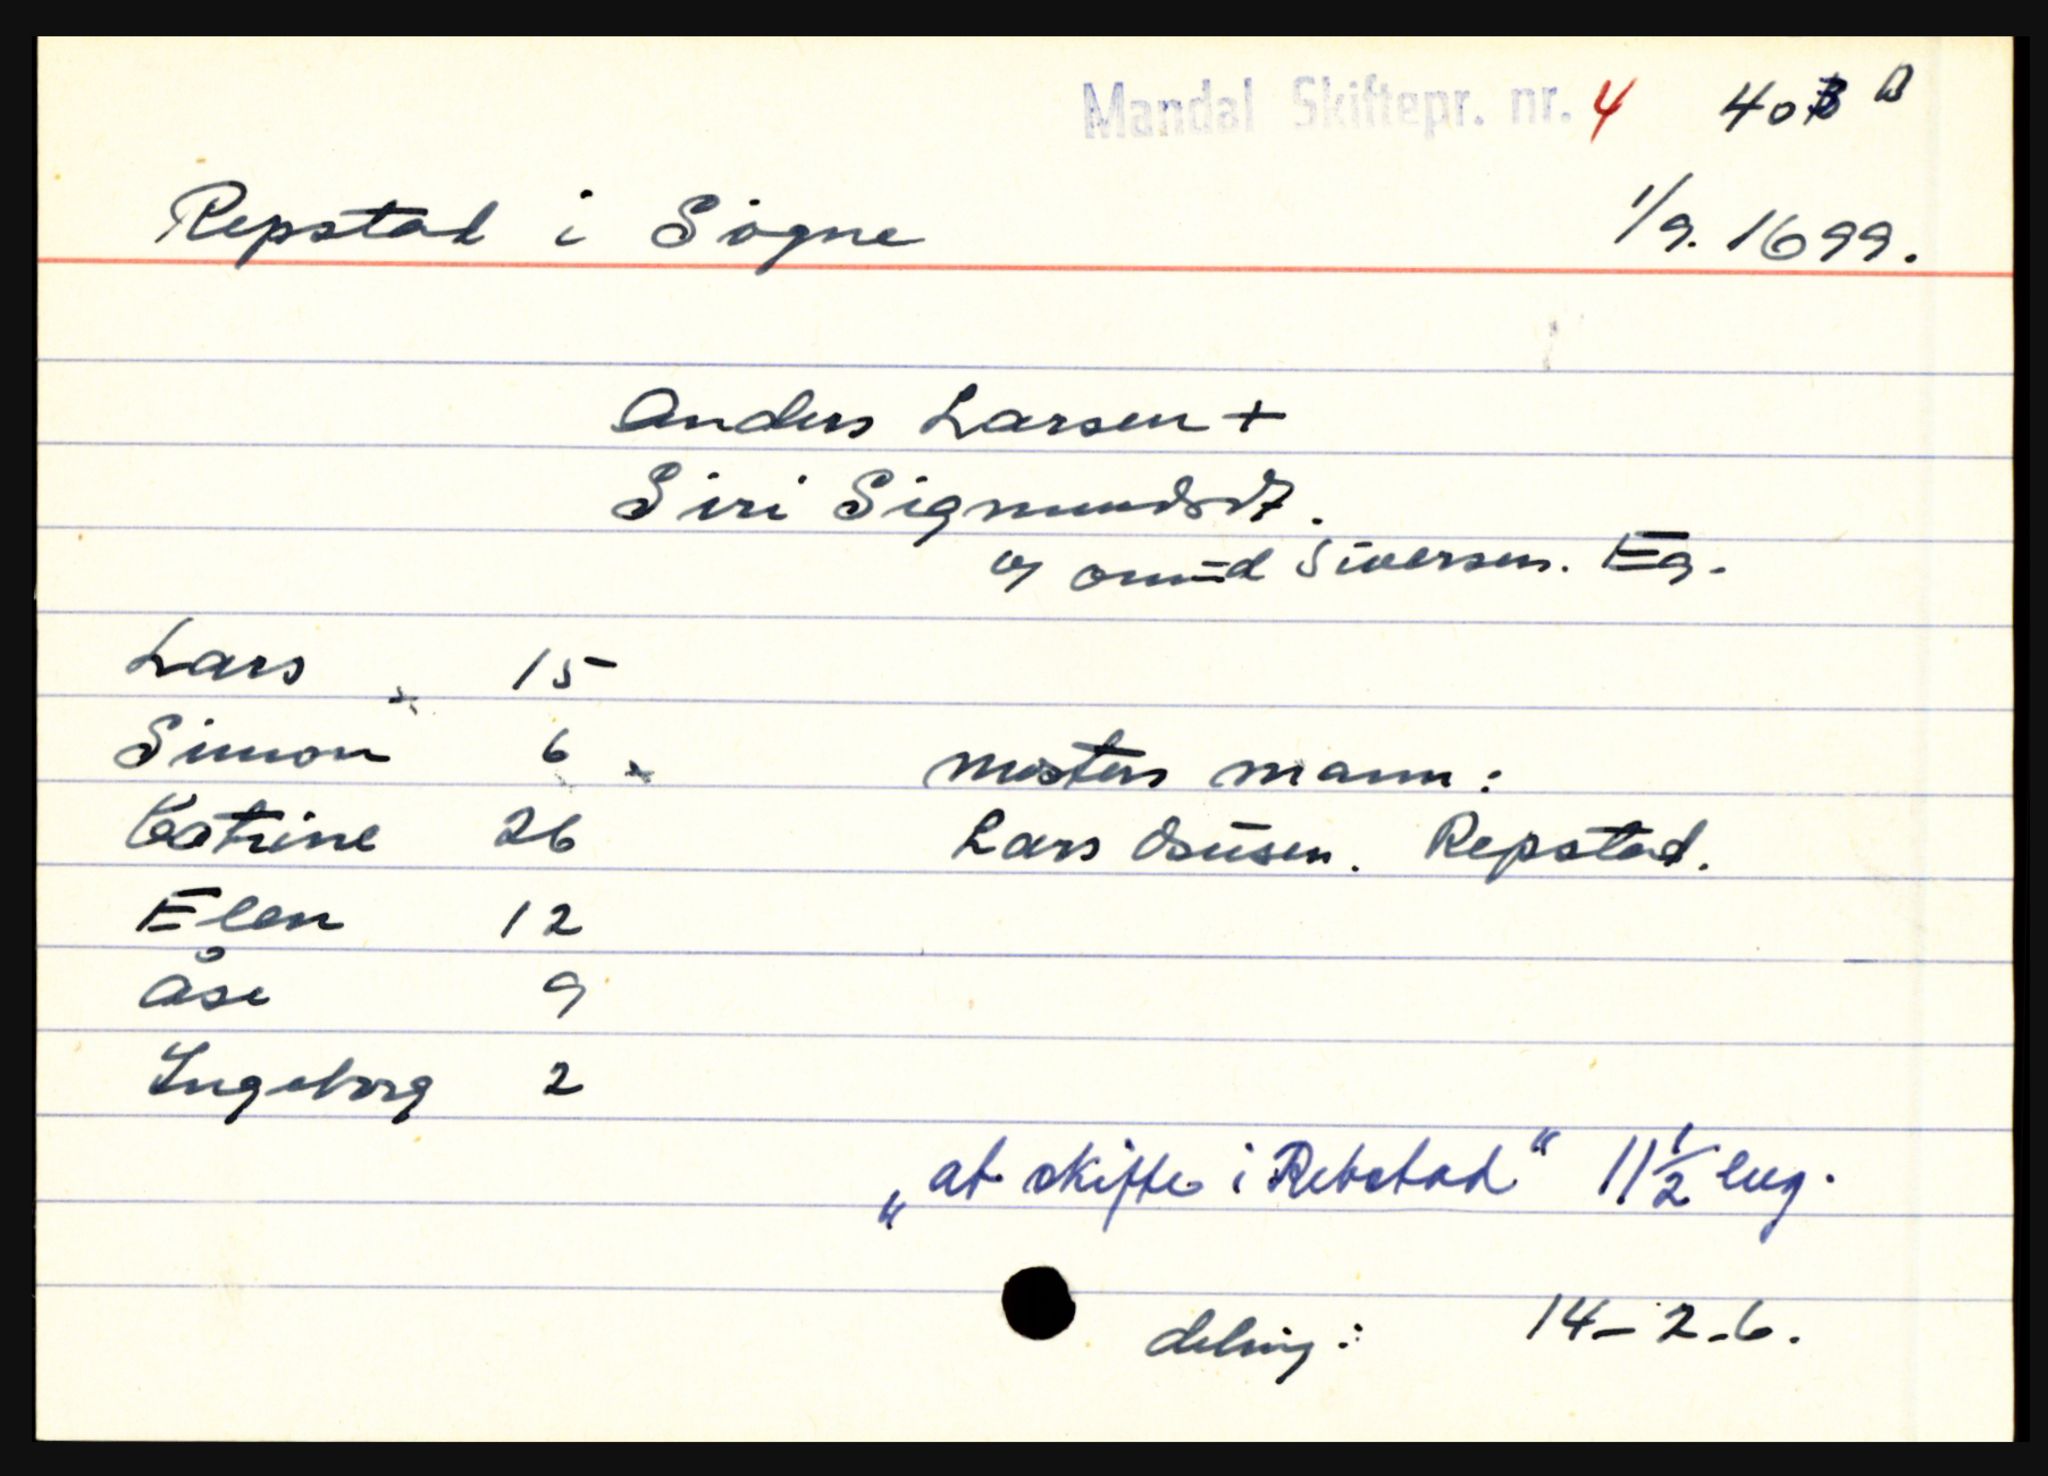 Mandal Skiftepr. nr. 4 40 B
Repstad i Søgne 1/9. 1699.
Anders Larsen +
Siri Sigmundsdt.
Omund Siversen. Eg.
Lars 15
Simon 6 x mosters mann:
Catrine 26 Lars Osusen. Repstad.
Elen 12
Åse 9
Ingeborg 2
„at skifte i Rebstad" 11 1/2 eng.
deling: 14-2-6.